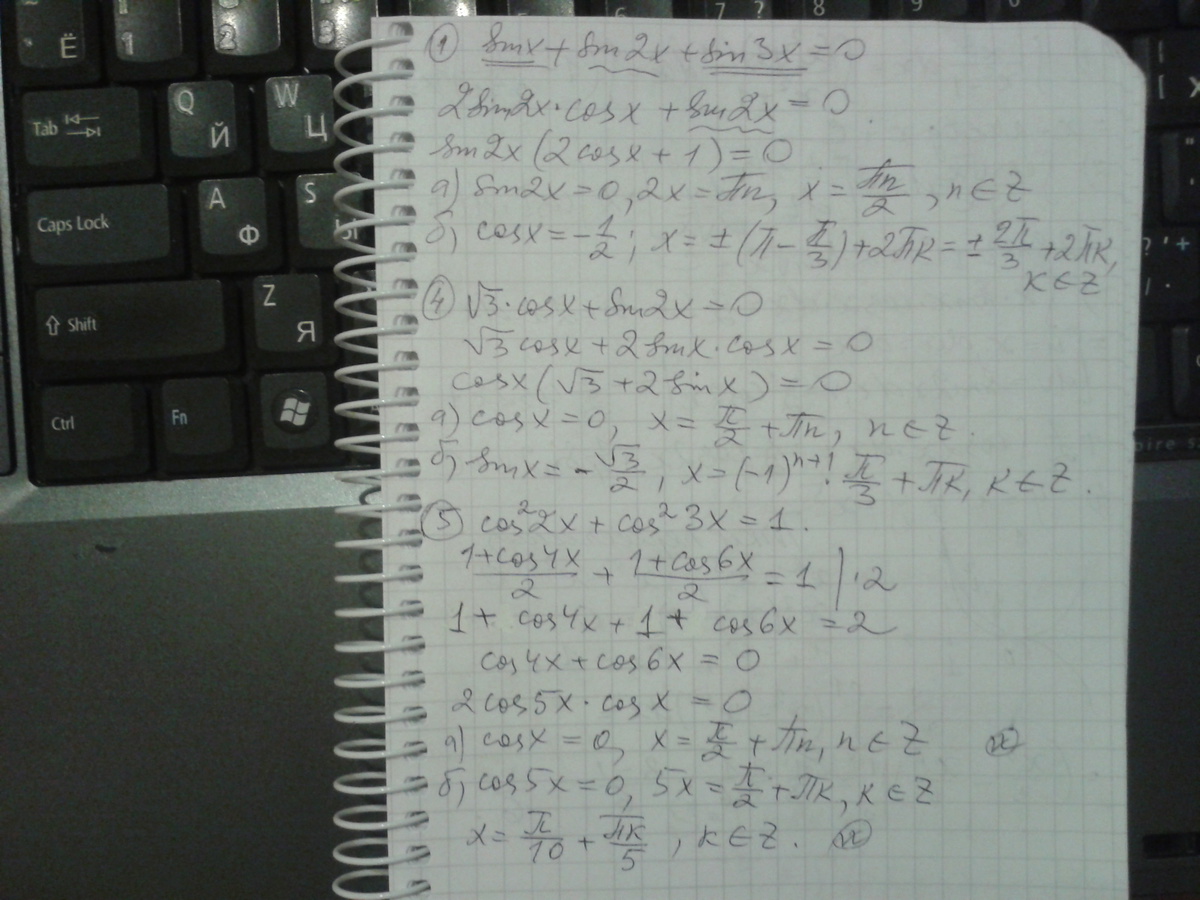 Ё 1 2 3 5 6 7 ? 8 9 0
Tab Q Й W Ц
Caps Lock A Ф S Ы
Shift Z Я
Ctrl Fn
① sinx + sin2x + sin3x = 0
2sin2x·cosx + sin2x = 0.
sin2x(2cosx + 1) = 0
а) sin2x = 0, 2x = πn, x = πn/2, n ∈ Z
б) cosx = -1/2; x = ±(π - π/3) + 2πk = ±2π/3 + 2πk,
k ∈ Z
④ √3·cosx + sin2x = 0
√3cosx + 2sinx·cosx = 0
cosx(√3 + 2sinx) = 0
а) cosx = 0, x = π/2 + πn, n ∈ Z.
б) sinx = -√3/2, x = (-1)ⁿ⁺¹·π/3 + πk, k ∈ Z.
⑤ cos²2x + cos²3x = 1.
(1+cos4x)/2 + (1+cos6x)/2 = 1 |·2
1 + cos4x + 1 + cos6x = 2
cos4x + cos6x = 0
2cos5x·cosx = 0
а) cosx = 0, x = π/2 + πn, n ∈ Z
б) cos5x = 0, 5x = π/2 + πk, k ∈ Z
x = π/10 + πk/5, k ∈ Z.